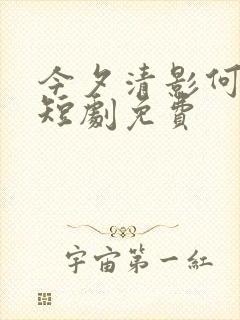 今夕清影何
短劇免費
宇宙第一紅